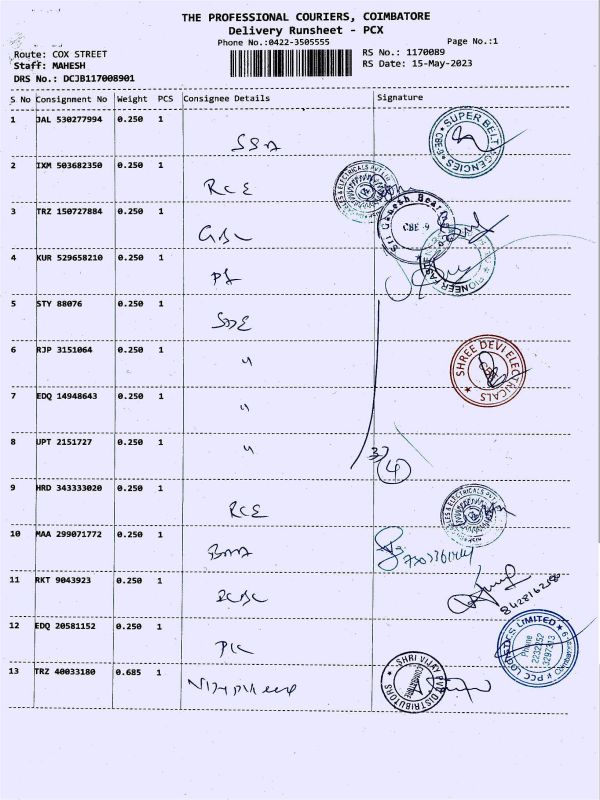 THE PROFESSIONAL COURIERS, COIMBATORE
Delivery Runsheet - PCX
Phone No.:0422-3505555
Page No.:1
Route: COX STREET
RS No.: 1170089
Staff: MAHESH
RS Date: 15-May-2023
DRS No.: DCJB117008901
S No Consignment No Weight PCS Consignee Details Signature
1 JAL 530277994 0.250 1 SSA
SUPER BELT AGENCIES CBE-9
2 IXM 503682350 0.250 1 RCE
3 TRZ 150727884 0.250 1 GBC
Sri Ganesh CBE-9
4 KUR 529658210 0.250 1
PIONEER
5 STY 88076 0.250 1
6 RJP 3151064 0.250 1 "
SHREE DEVI ELECTRICALS
7 EDQ 14948643 0.250 1 "
8 UPT 2151727 0.250 1 "
4
9 HRD 343333020 0.250 1 RCE
10 MAA 299071772 0.250 1
11 RKT 9043923 0.250 1
12 EDQ 20581152 0.250 1
PCC LOGISTICS LIMITED
Phone
2232252
3297313
13 TRZ 40033180 0.685 1
SHRI VIJAY PVC DISTRIBUTORS
COIMBATORE